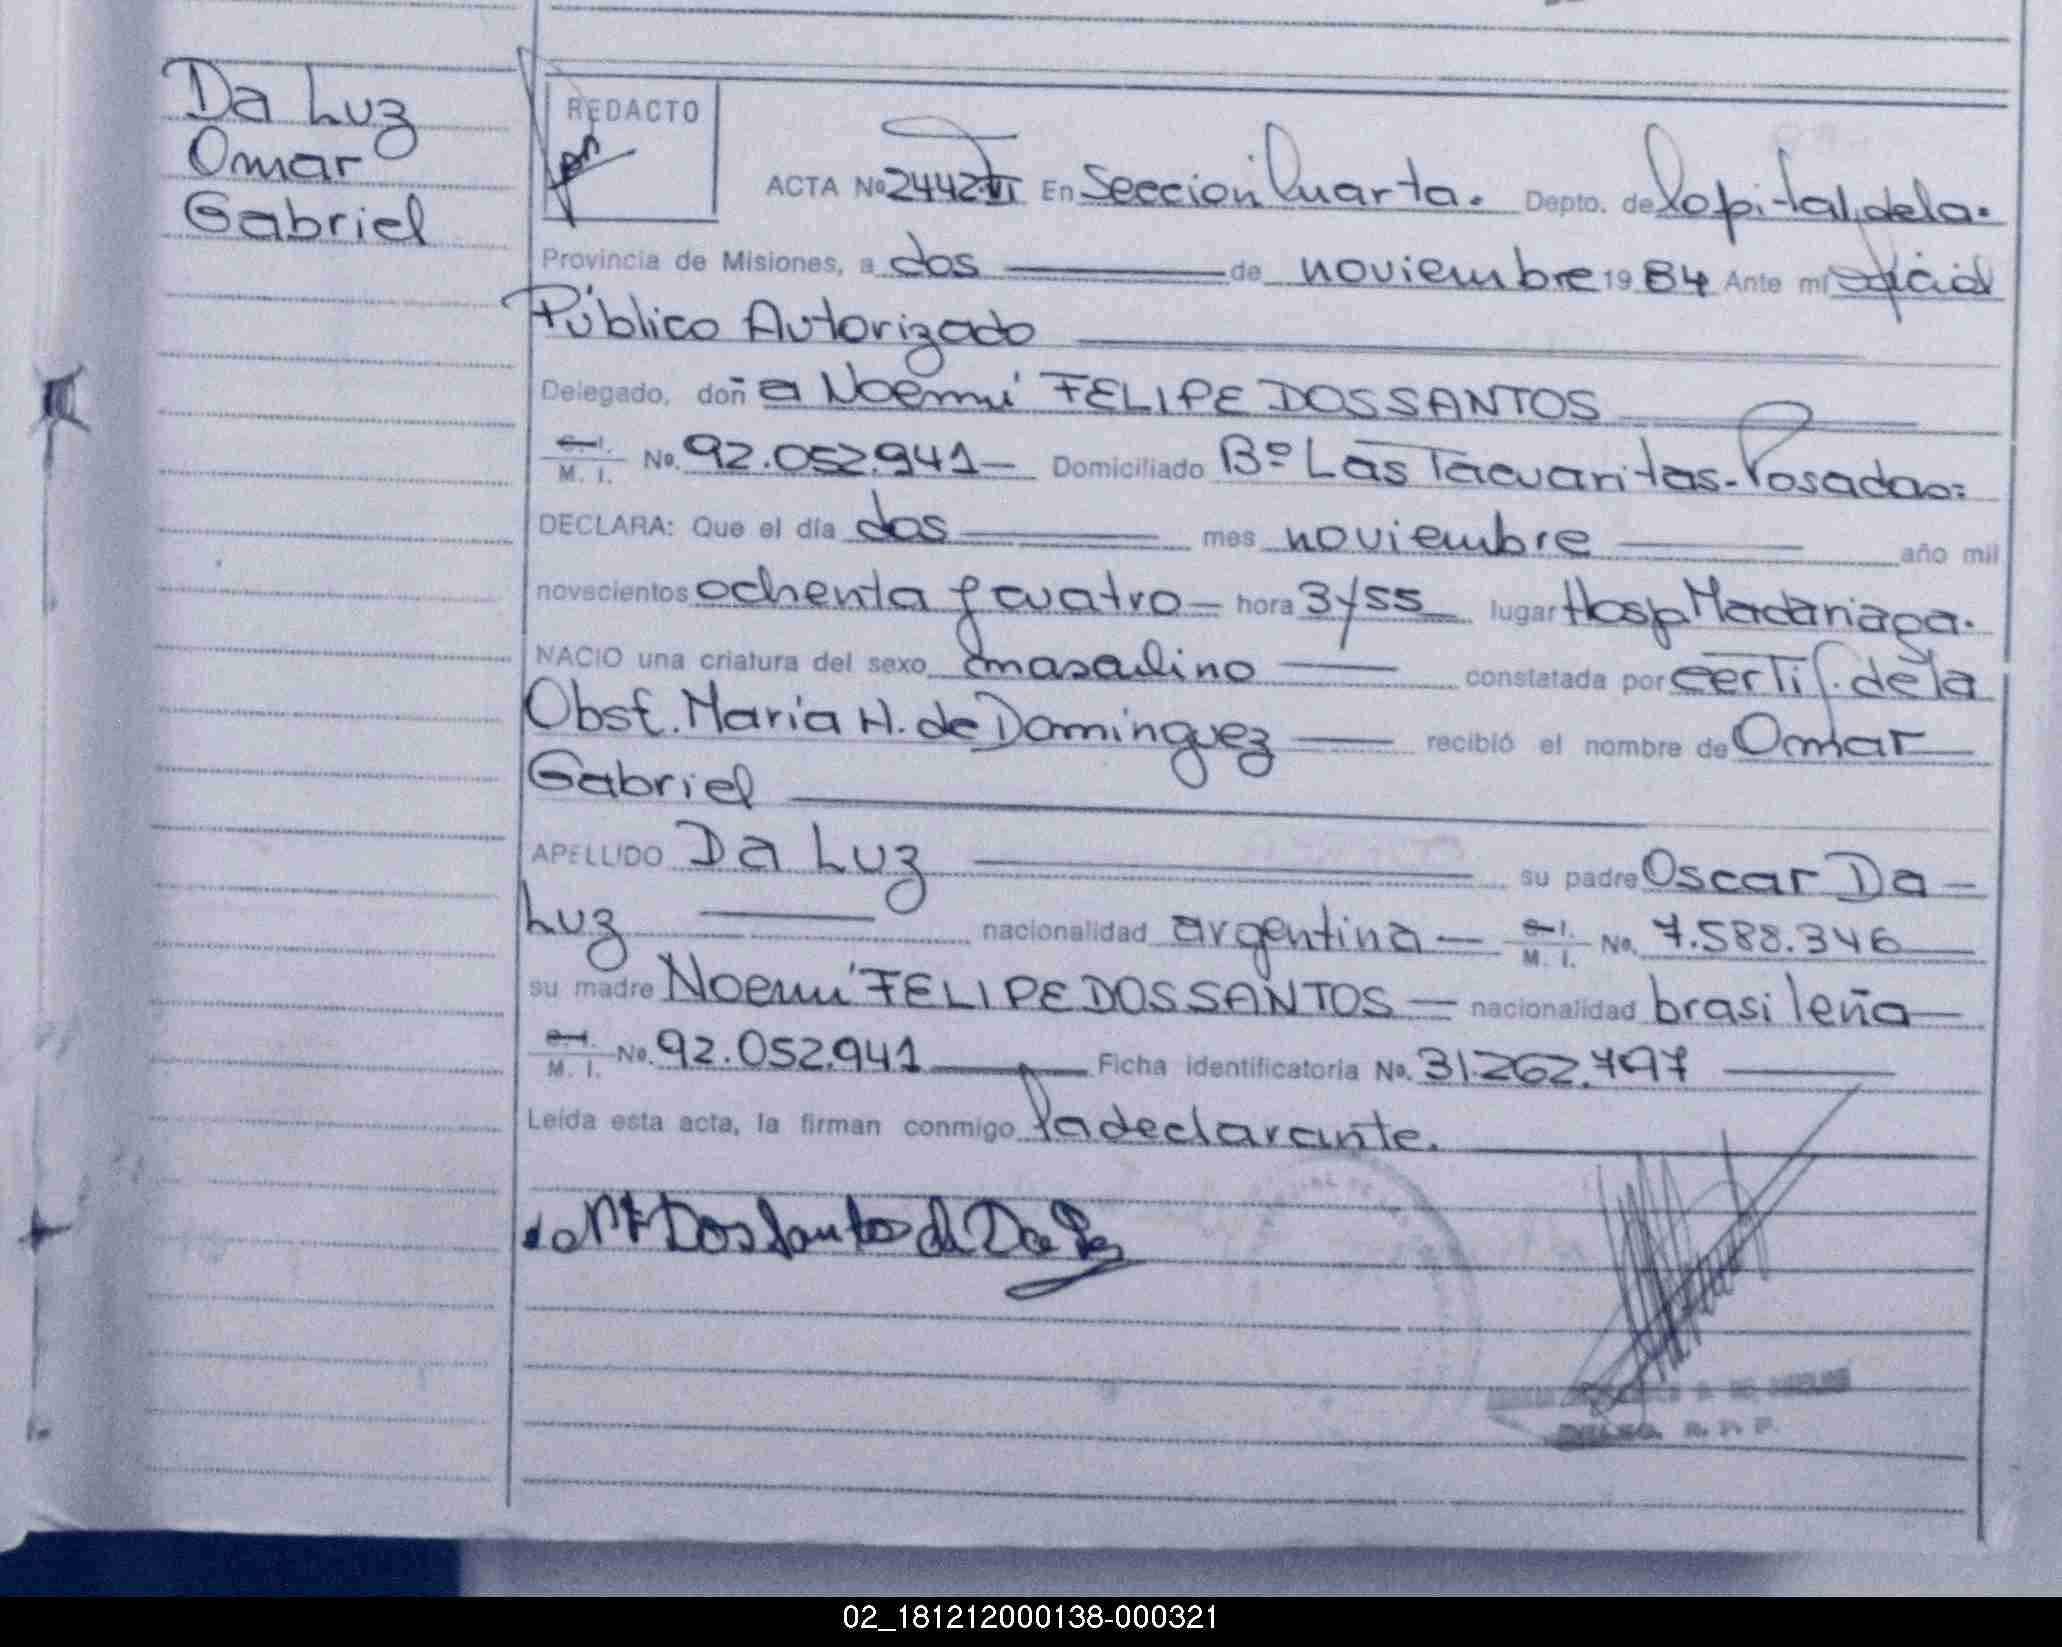 Da Luz
Omar
Gabriel
REDACTO
ACTA No 2442 VI En Sección Cuarta. Depto. de Capital, de la.
Provincia de Misiones, a dos de noviembre 1984 Ante mí oficial
Público Autorizado
Delegado, doñ a Noemí FELIPE DOS SANTOS
C. I.
M. I. No. 92.052.941 Domiciliado Bº Las Tacuaritas - Posadas=
DECLARA: Que el día dos mes noviembre año mil
novecientos ochenta y cuatro hora 3/55 lugar Hosp Madariaga.
NACIO una criatura del sexo masculino constatada por certif. de la
Obst. Maria H. de Dominguez recibió el nombre de Omar
Gabriel
APELLIDO Da Luz su padre Oscar Da
Luz nacionalidad argentina C. I. M. I. No. 7.588.346
su madre Noemí FELIPE DOS SANTOS nacionalidad brasileña
C. I.
M. I. No. 92.052.941 Ficha identificatoria No. 31.262.797
Leída esta acta, la firman conmigo la declarante.
Dos Santos de Da
DELEG. R. P. P.
02_181212000138-000321